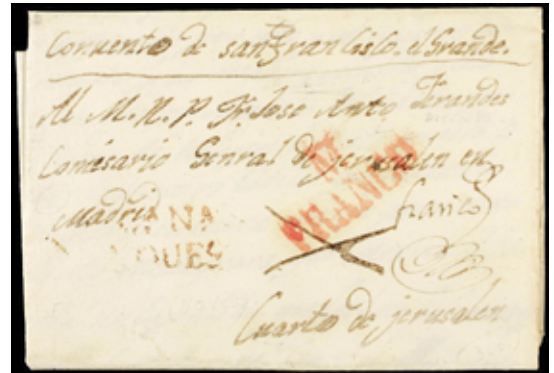 Convento de san Francisco el Grande.
Al M. R. P. Fr. Jose Anto Ferandes
Comisario Genral de jerusalen en
Madrid
FRANCO
franco
Cuarto de jerusalen